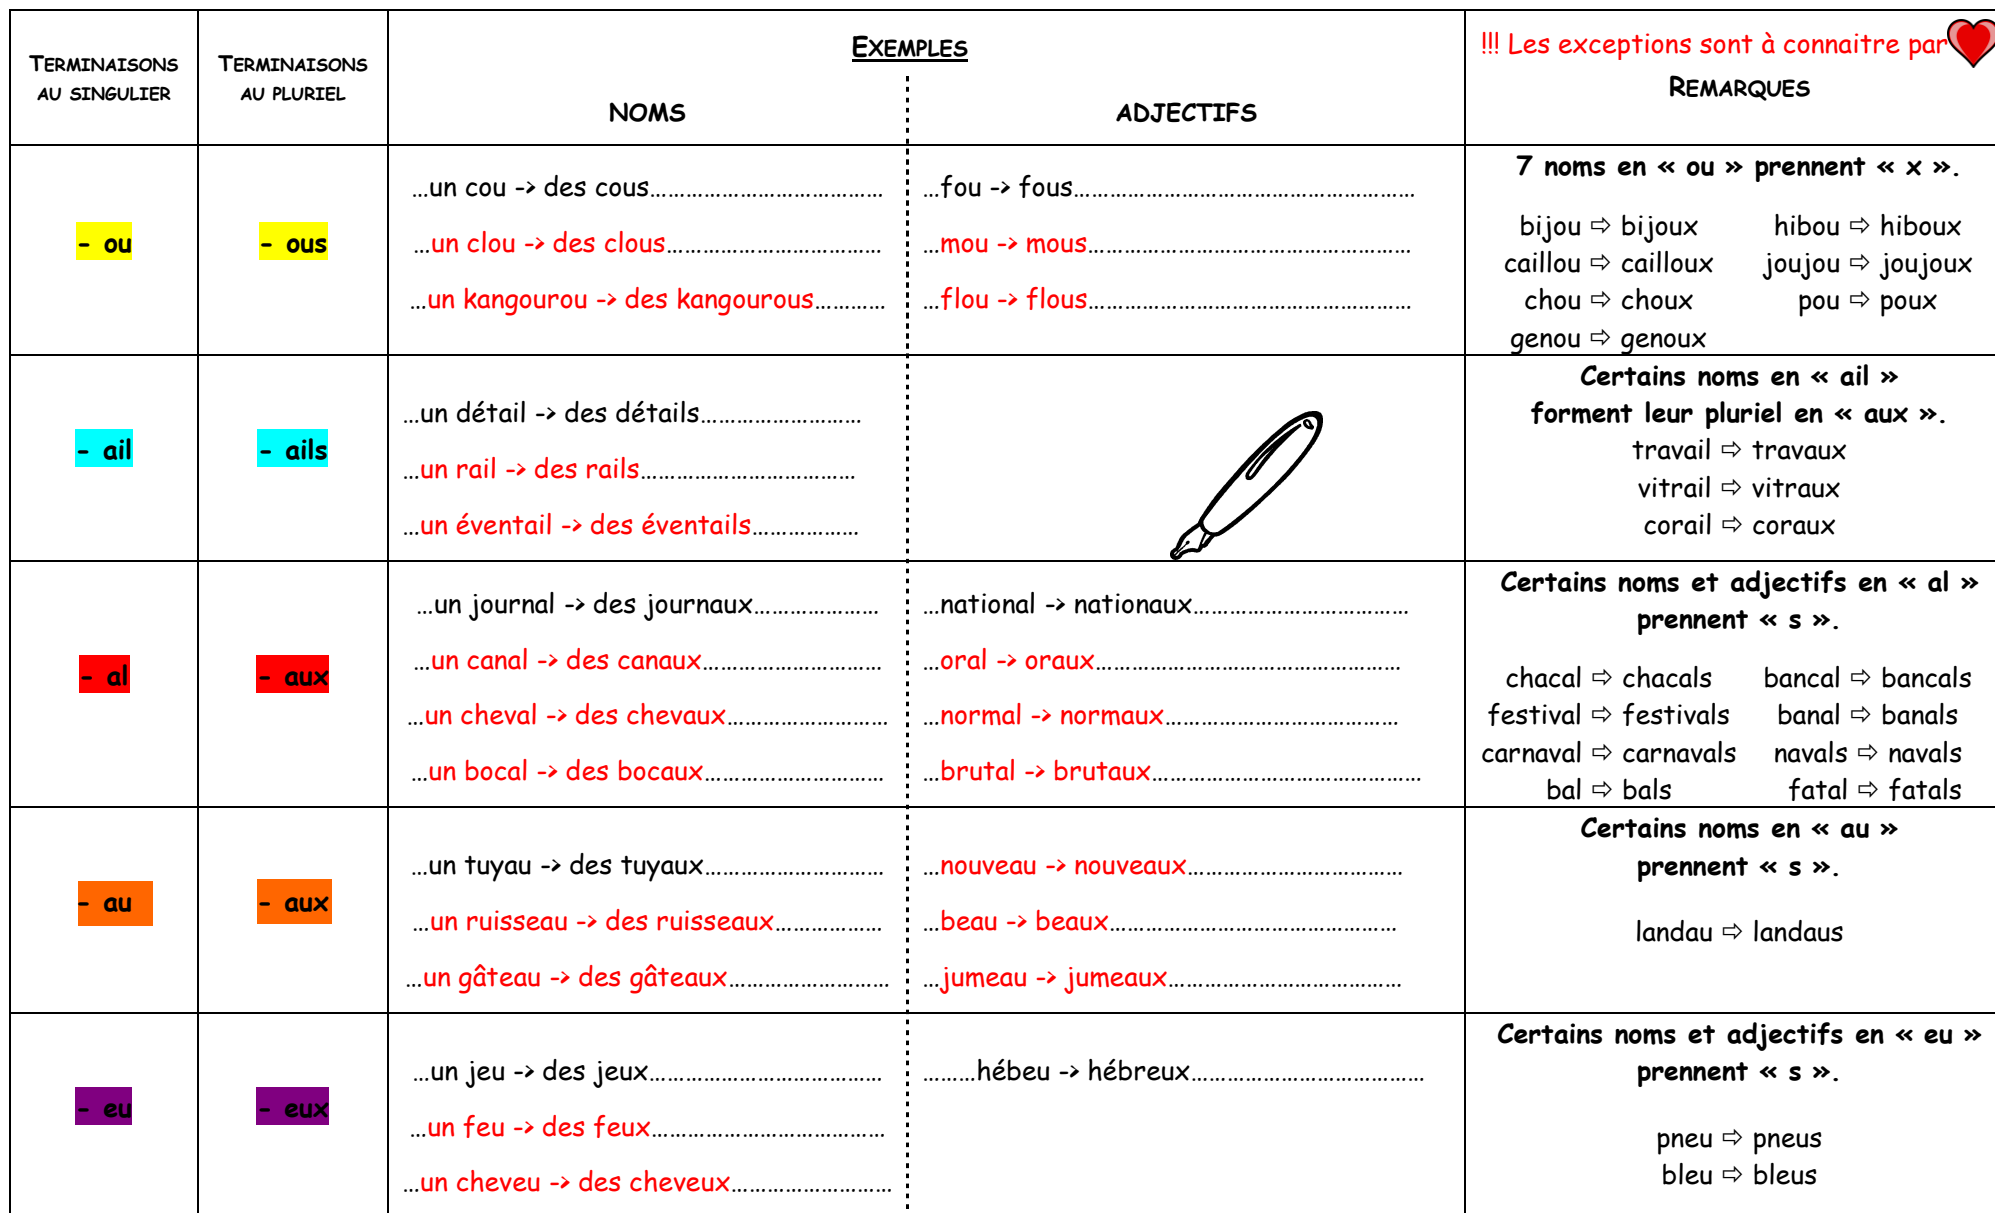 TERMINAISONS AU SINGULIER
TERMINAISONS AU PLURIEL
EXEMPLES
NOMS
ADJECTIFS
!!! Les exceptions sont à connaitre par
REMARQUES
- ou
- ous
...un cou -> des cous.......................................
...un clou -> des clous....................................
...un kangourou -> des kangourous............
...fou -> fous.........................................................
...mou -> mous......................................................
...flou -> flous......................................................
7 noms en « ou » prennent « x ».
bijou ⇨ bijoux hibou ⇨ hiboux
caillou ⇨ cailloux joujou ⇨ joujoux
chou ⇨ choux pou ⇨ poux
genou ⇨ genoux
- ail
- ails
...un détail -> des détails...........................
...un rail -> des rails....................................
...un éventail -> des éventails..................
Certains noms en « ail »
forment leur pluriel en « aux ».
travail ⇨ travaux
vitrail ⇨ vitraux
corail ⇨ coraux
- al
- aux
...un journal -> des journaux.....................
...un canal -> des canaux..............................
...un cheval -> des chevaux...........................
...un bocal -> des bocaux..............................
...national -> nationaux....................................
...oral -> oraux...................................................
...normal -> normaux.......................................
...brutal -> brutaux.............................................
Certains noms et adjectifs en « al »
prennent « s ».
chacal ⇨ chacals bancal ⇨ bancals
festival ⇨ festivals banal ⇨ banals
carnaval ⇨ carnavals navals ⇨ navals
bal ⇨ bals fatal ⇨ fatals
- au
- aux
...un tuyau -> des tuyaux..............................
...un ruisseau -> des ruisseaux..................
...un gâteau -> des gâteaux...........................
...nouveau -> nouveaux....................................
...beau -> beaux................................................
...jumeau -> jumeaux.......................................
Certains noms en « au »
prennent « s ».
landau ⇨ landaus
- eu
- eux
...un jeu -> des jeux.......................................
...un feu -> des feux.......................................
...un cheveu -> des cheveux...........................
.........hébeu -> hébreux.......................................
Certains noms et adjectifs en « eu »
prennent « s ».
pneu ⇨ pneus
bleu ⇨ bleus